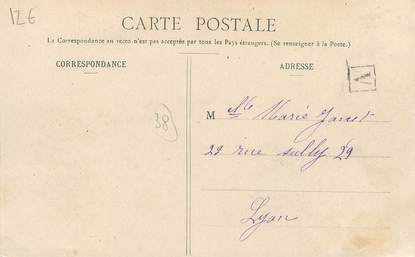 12€
CARTE POSTALE
La Correspondance au recto n'est pas acceptée par tous les Pays étrangers. (Se renseigner à la Poste.)
CORRESPONDANCE
ADRESSE
A
38
M lle Marie
29 rue Sully 29
Lyon